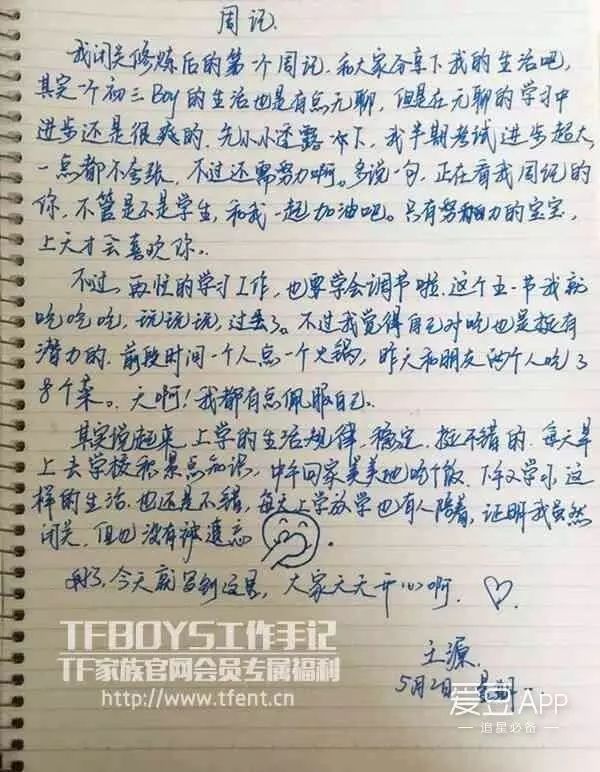 周记.
我闭关修炼后的第一个周记,和大家分享下我的生活吧,
其实一个初三Boy的生活也是有点无聊,但是在无聊的学习中
进步还是很爽的,先小小透露一下,我半期考试进步超大,
一点都不夸张,不过还需努力啊。多说一句,正在看我周记的
你,不管是不是学生,和我一起加油吧。只有努力的宝宝,
上天才会喜欢你。
不过,再忙的学习工作,也要学会调节啦.这个五一节我就
吃吃吃,玩玩玩,过去了。不过我觉得自己对吃也是挺有
潜力的.前段时间一个人点一个火锅,昨天和朋友两个人吃了
8个菜。天啊!我都有点佩服自己.
其实说起来,上学的生活规律,稳定,挺不错的.每天早
上去学校积累点知识,中午回家美美地吃个饭.下午又学习,这
样的生活,也还是不错,每天上学放学也有人陪着,证明我虽然
闭关,但也没有被遗忘.
好了,今天就写到这里,大家天天开心啊.
王源.
5月2日 星期一.
TFBOYS工作手记
TF家族官网会员专属福利
http://www.tfent.cn
爱豆APP
追星必备